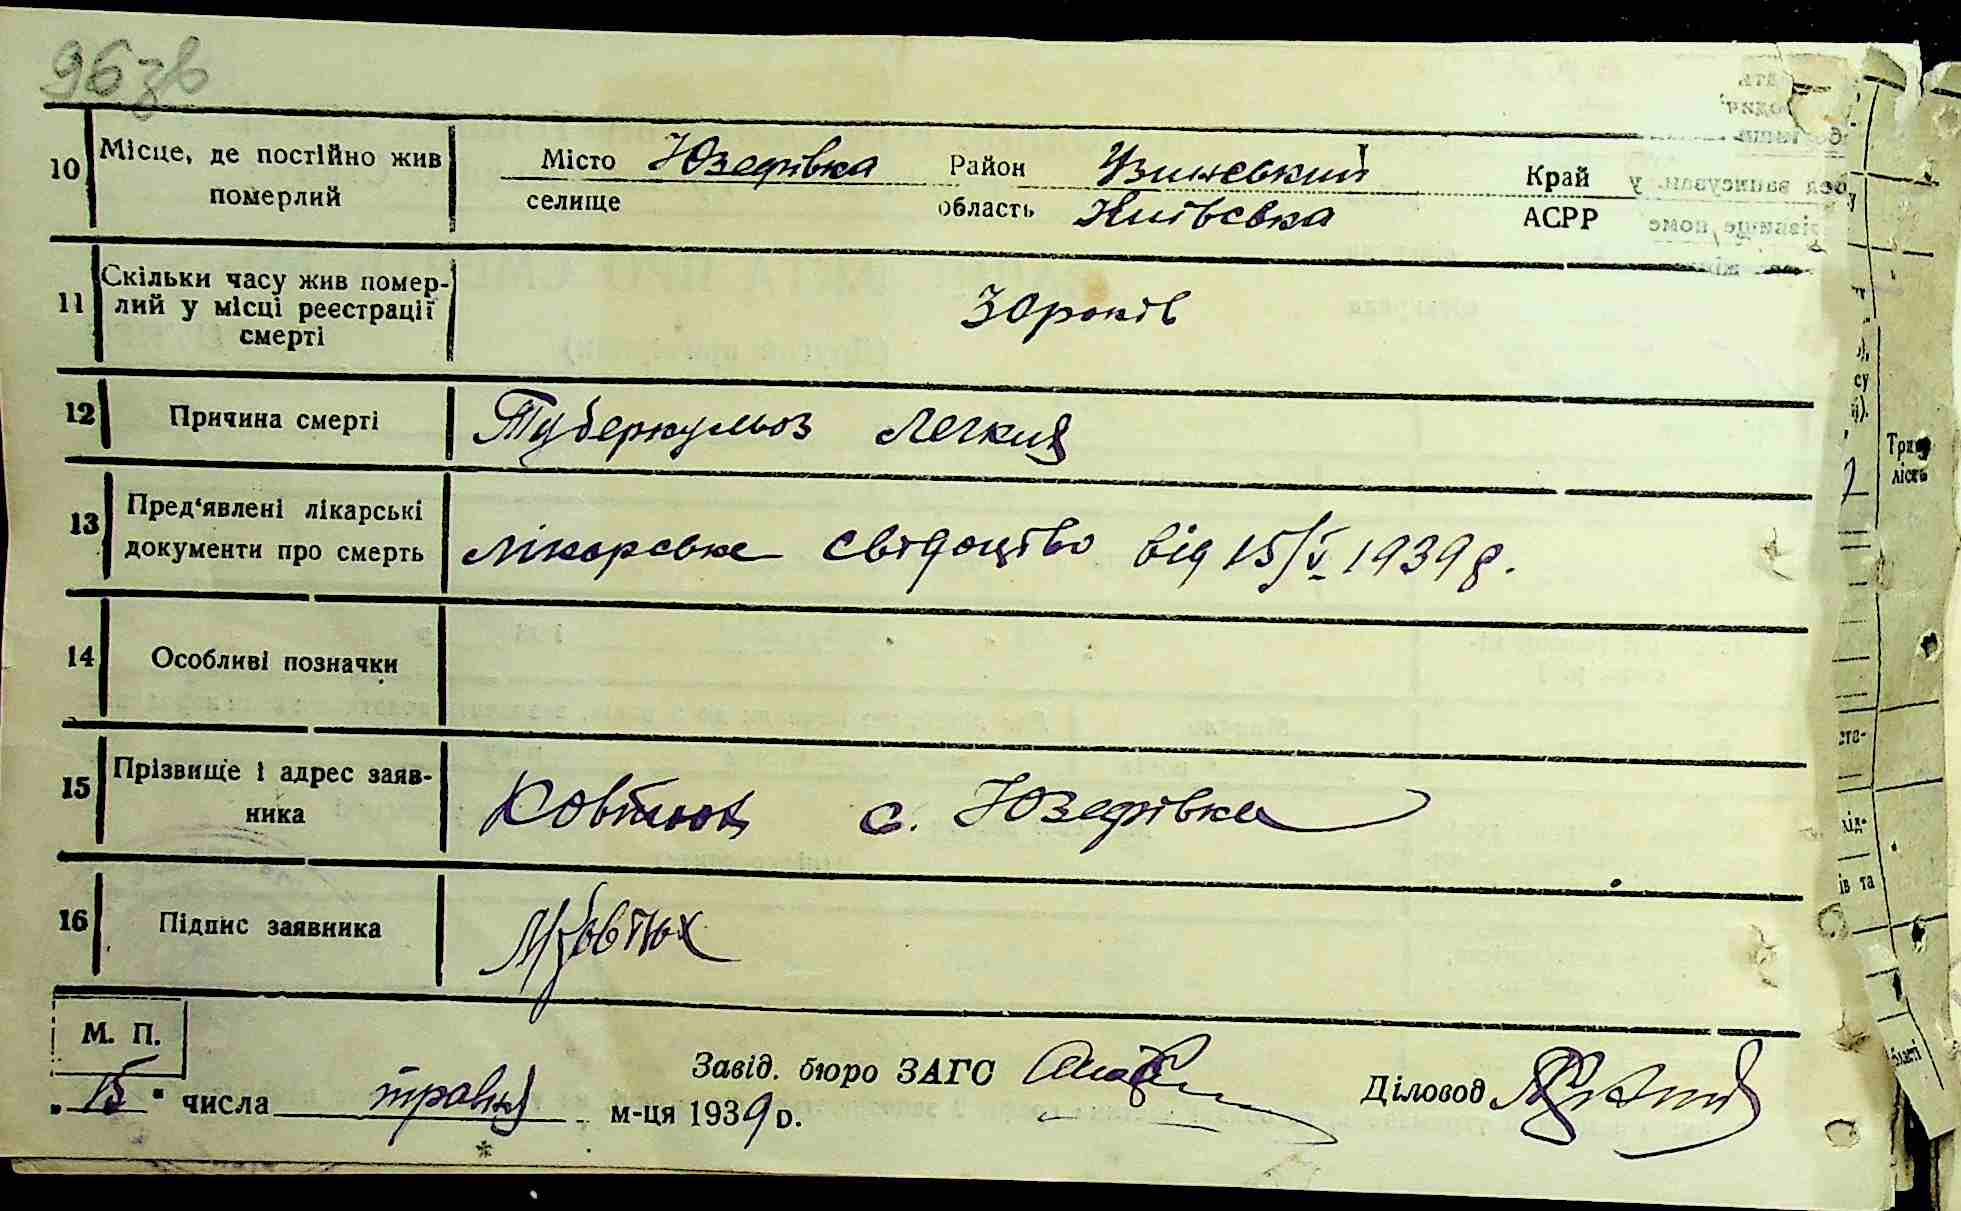 96 зв
10 Місце, де постійно жив померлий
Місто Юзефівка Район Узинський Край
селище область Київська АСРР
11 Скільки часу жив помер-
лий у місці реєстрації
смерті
30 років
12 Причина смерті Туберкульоз Легкия
13 Пред'явлені лікарські
документи про смерть
лікарське свідоцтво від 15/V 1939 р.
14 Особливі позначки
15 Прізвище і адрес заяв-
ника
Ковтюх с. Юзефівка
16 Підпис заявника МКовтюх
М. П.
Завід. бюро ЗАГС Діловод
„15" числа травня м-ця 1939 р.
*